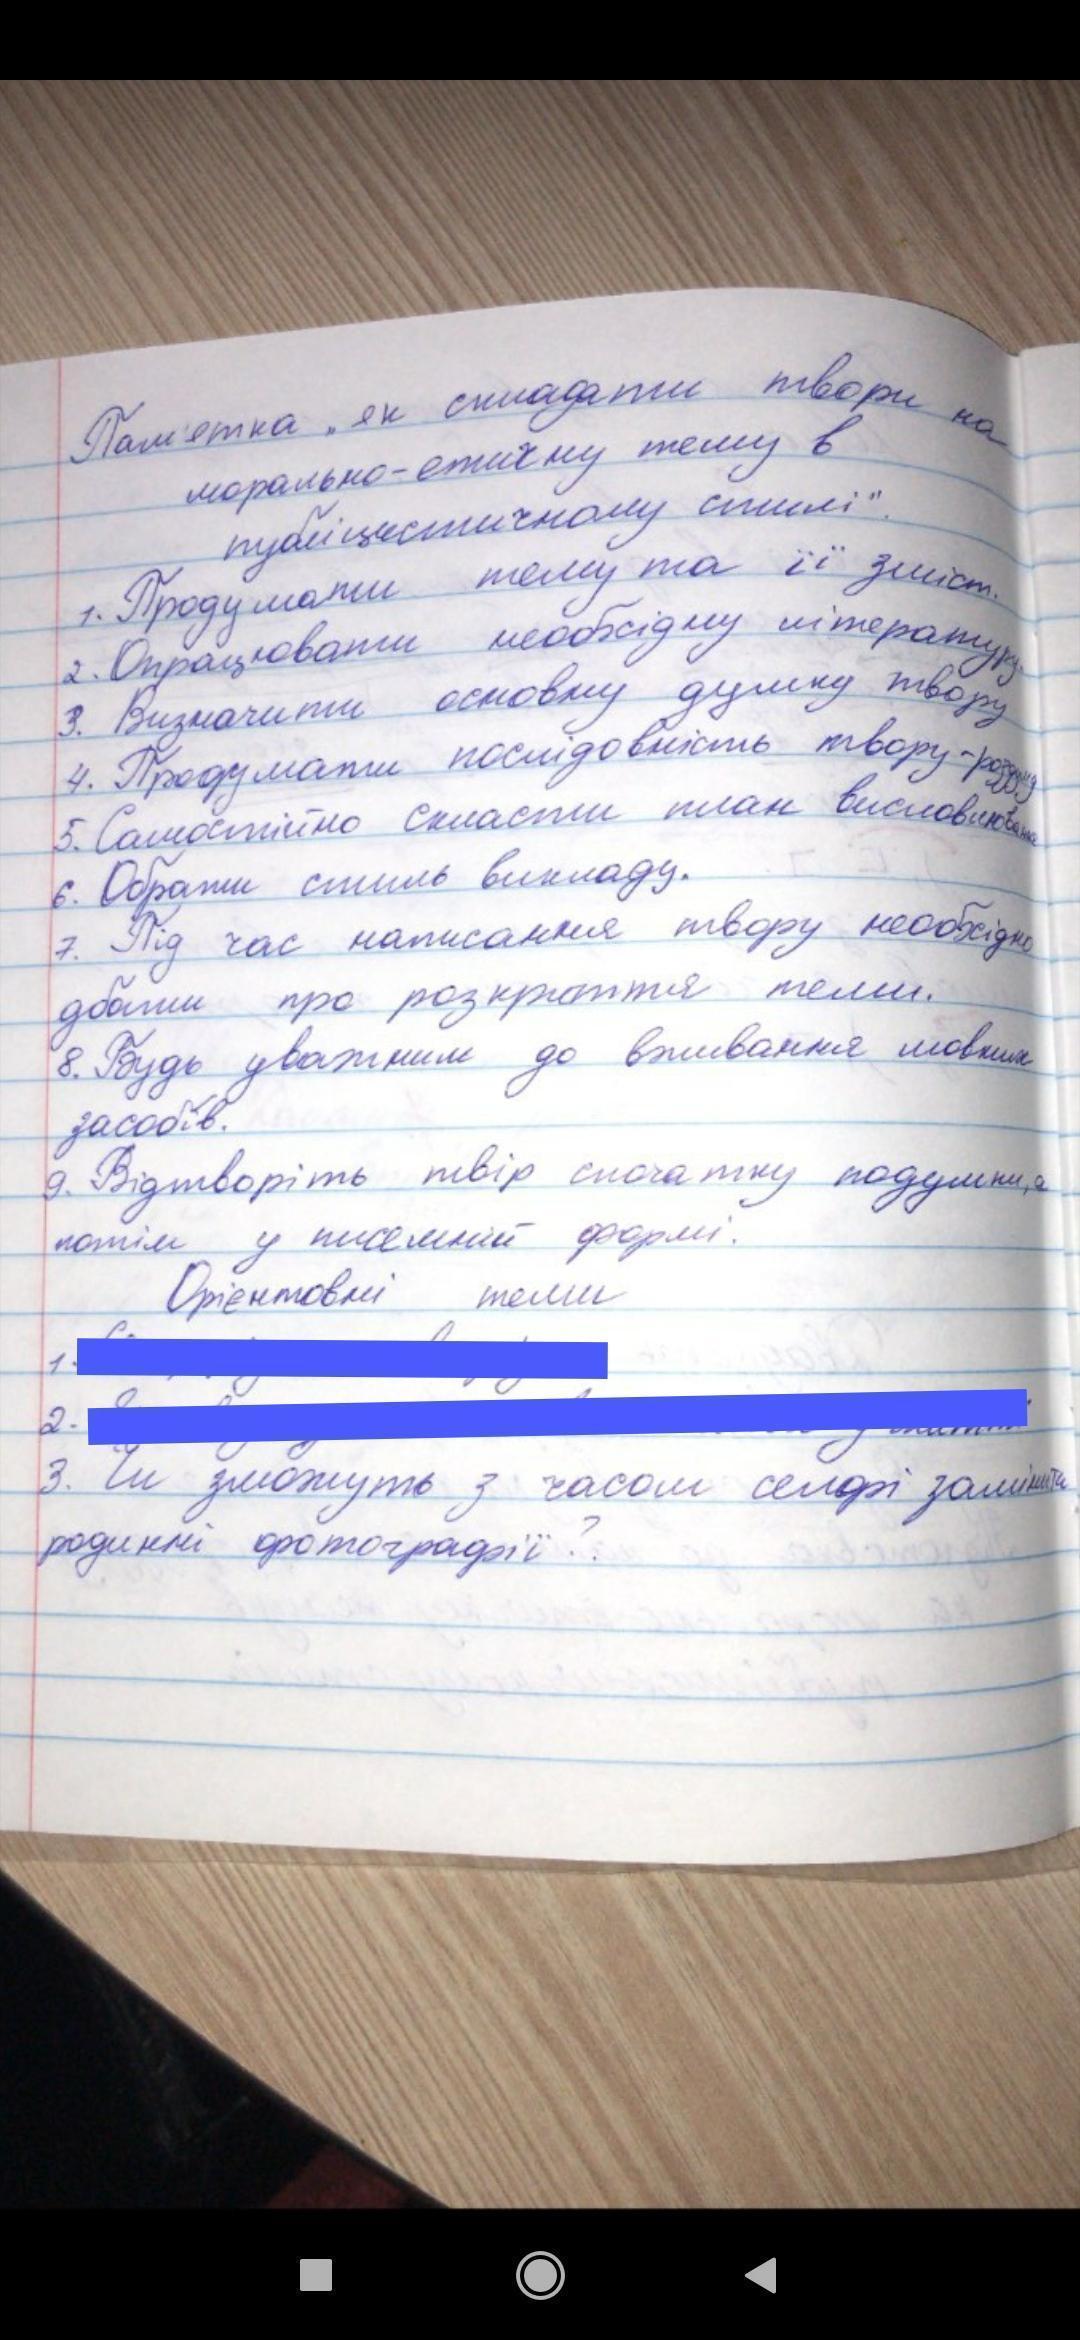 Пам'ятка „як складати твори на
морально-етичну тему в
публіцистичному стилі".
1. Продумати тему та її зміст.
2. Опрацювати необхідну літературу.
3. Визначити основну думку твору
4. Продумати послідовність твору-роздуму
5. Самостійно скласти план висловлювання
6. Обрати стиль викладу.
7. Під час написання твору необхідно
дбати про розкриття теми.
8. Будь уважним до вживання мовних
засобів.
9. Відтворіть твір спочатку подумки, а
потім у писемній формі.
Орієнтовні теми
1.
2.
3. Чи зможуть з часом селфі замінити
родинні фотографії?